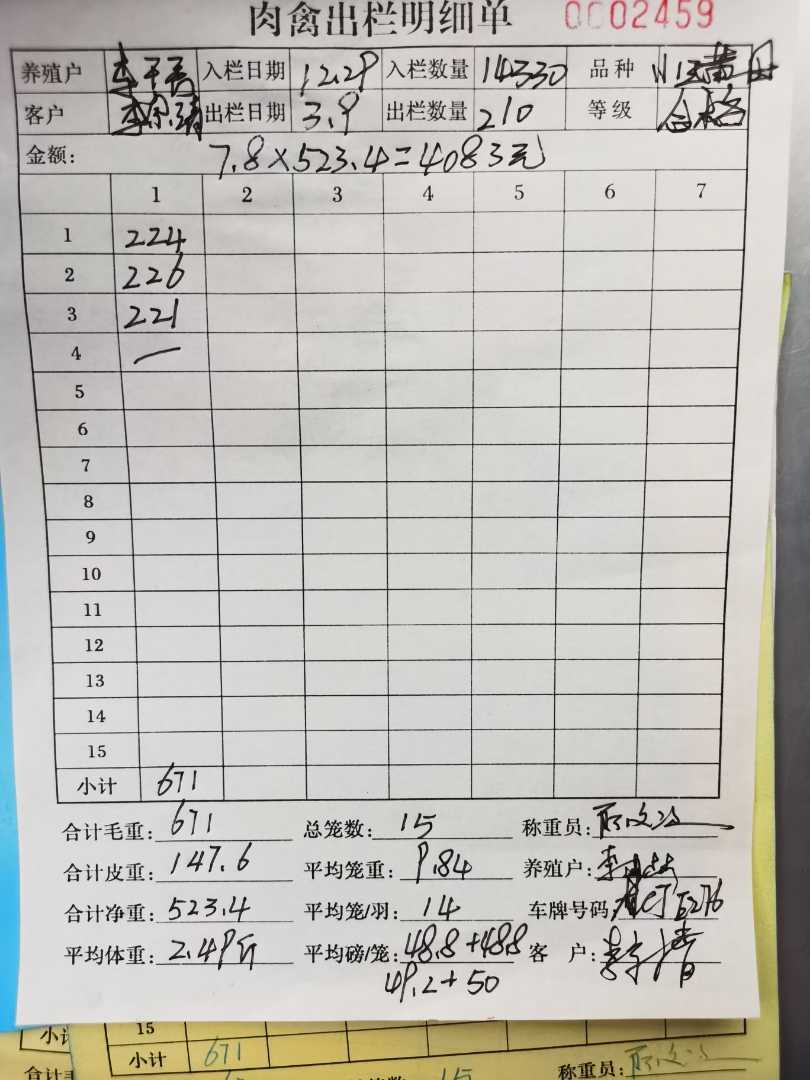 肉禽出栏明细单 0002459
养殖户 李 入栏日期 12.29 入栏数量 14330 品种
客户 李 出栏日期 3.9 出栏数量 210 等级 合格
金额: 7.8×523.4=4083元
1 2 3 4 5 6 7
1 224
2 226
3 221
4 —
5
6
7
8
9
10
11
12
13
14
15
小计 671
合计毛重: 671 总笼数: 15 称重员:
合计皮重: 147.6 平均笼重: 9.84 养殖户: 李
合计净重: 523.4 平均笼/羽: 14 车牌号码:
平均体重: 2.49斤 平均磅/笼: 48.8+48.8 客 户:
49.2+50
15
小计 671
合计毛 15 称重员: